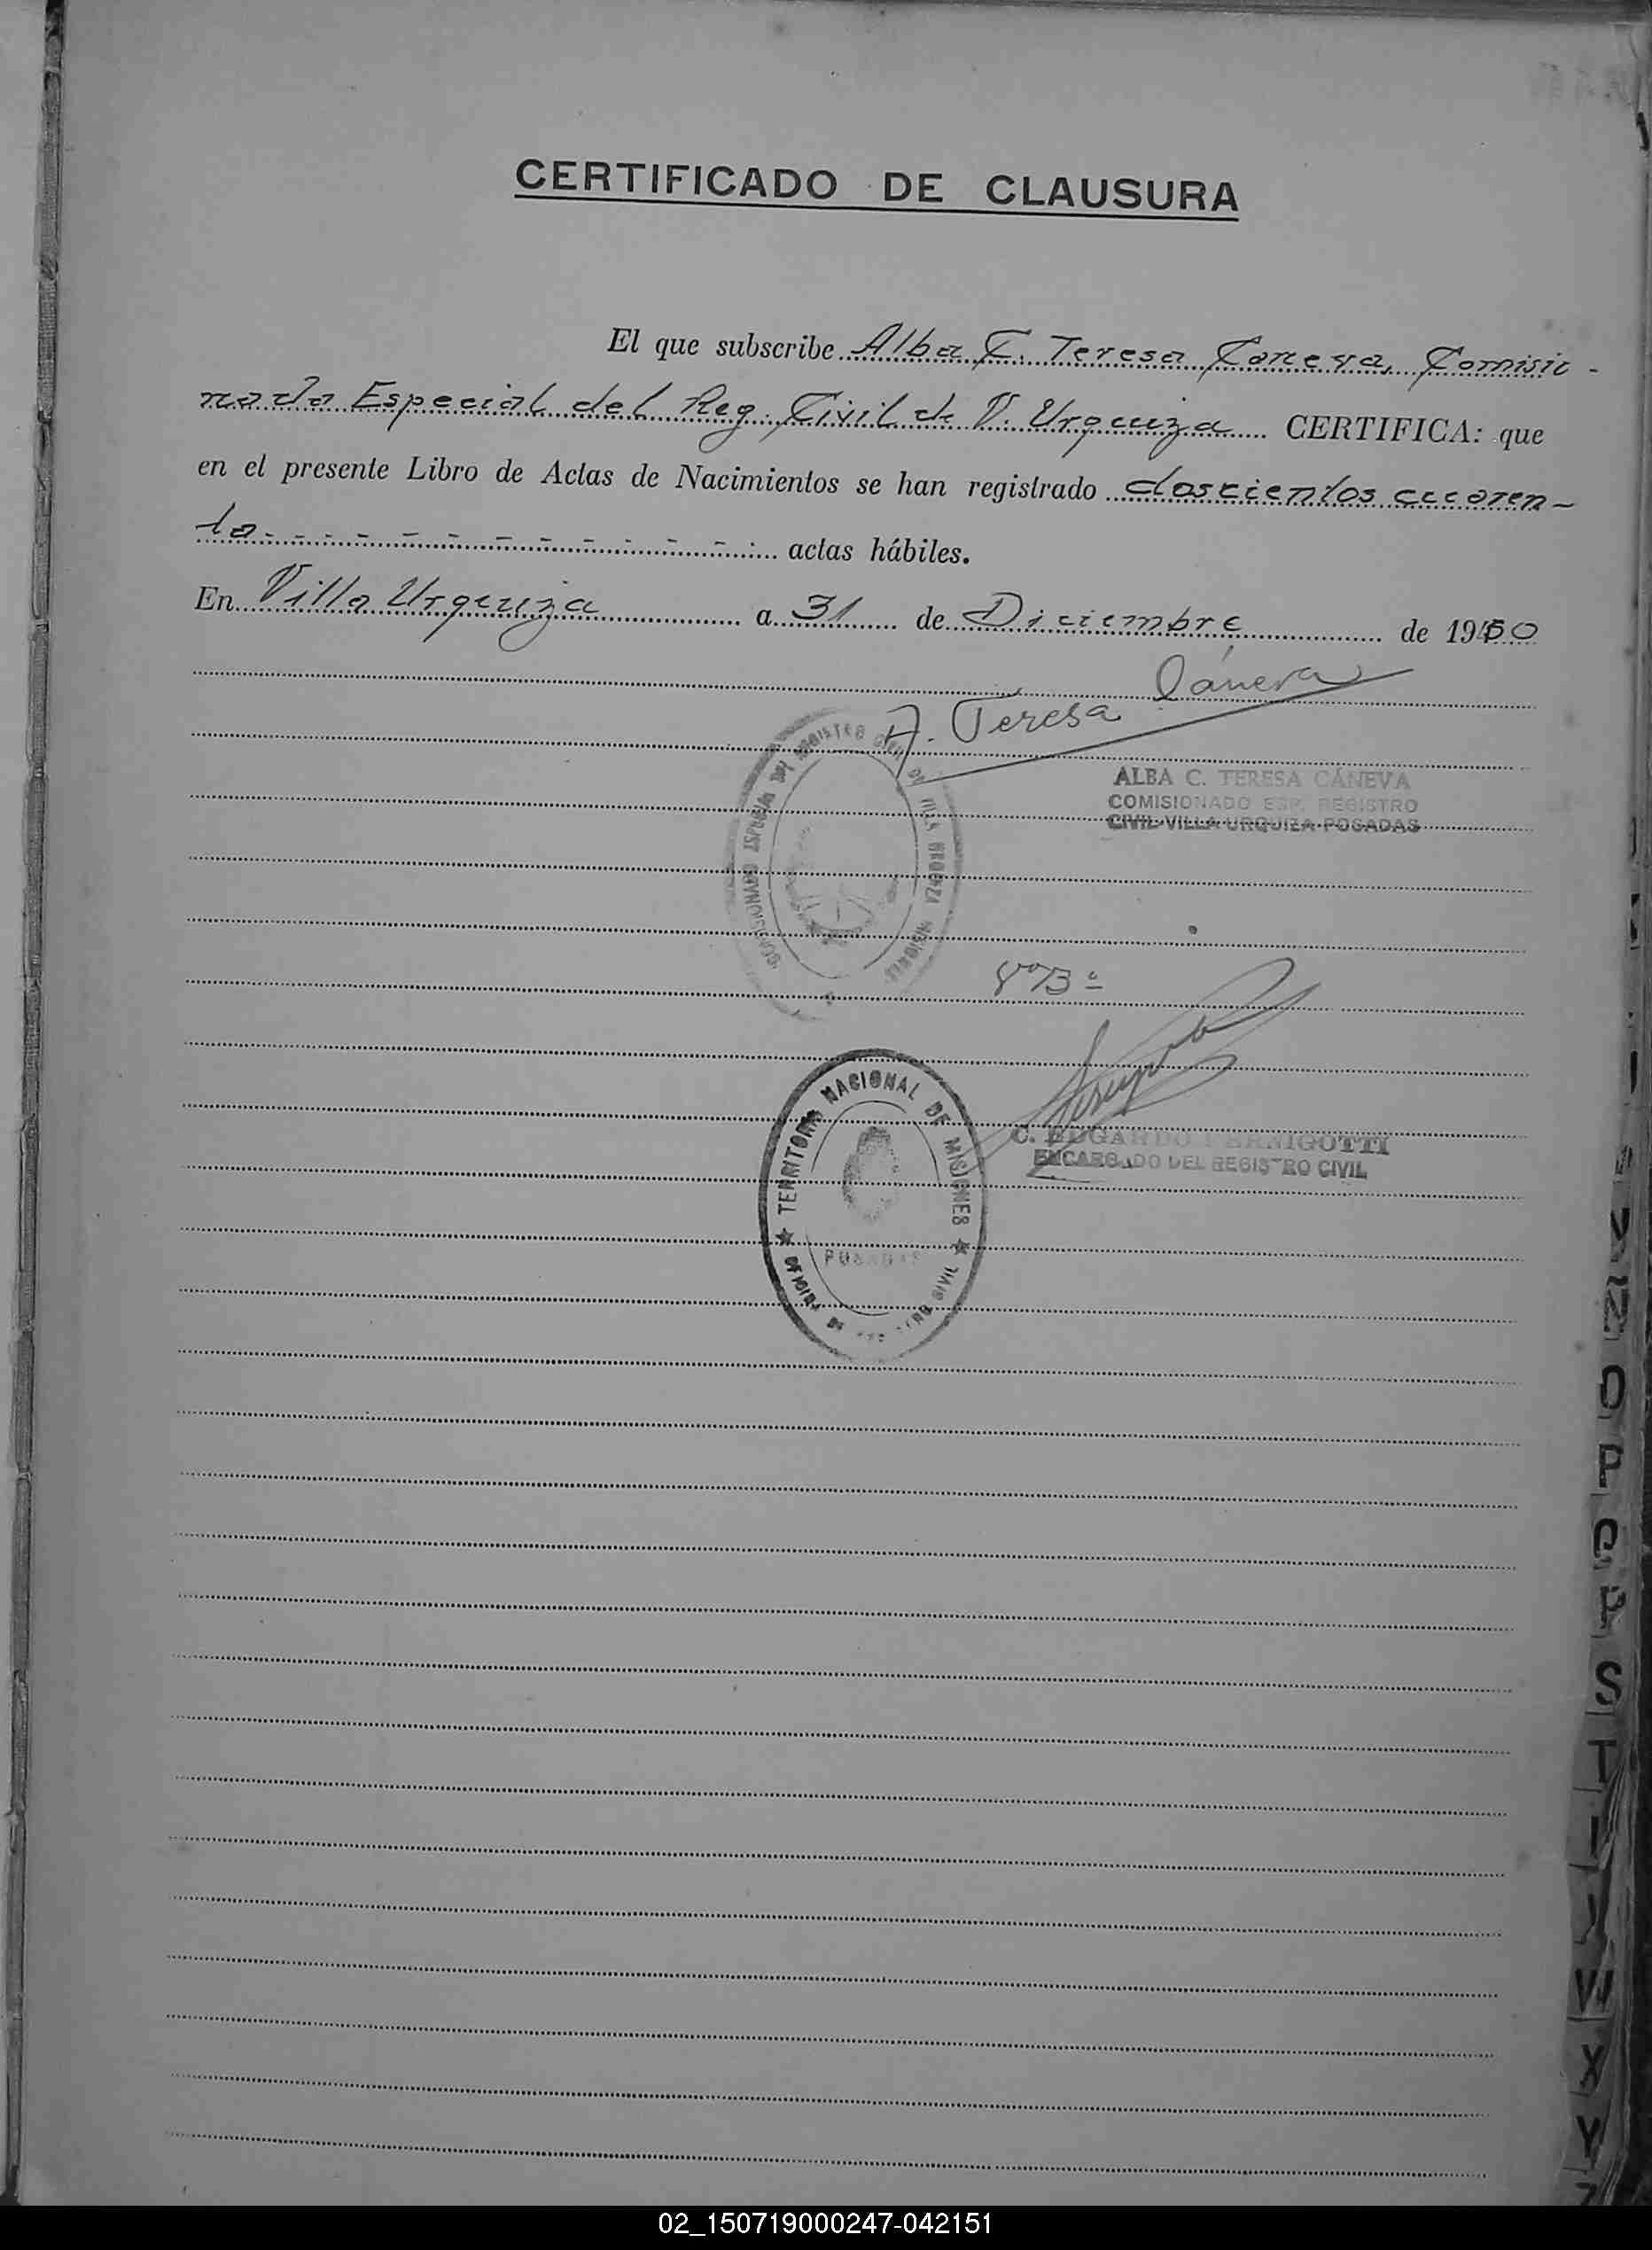 CERTIFICADO DE CLAUSURA
El que subscribe Alba C. Teresa Caneva, Comisio-
nada Especial del Reg. Civil de V. Urquiza CERTIFICA: que
en el presente Libro de Actas de Nacimientos se han registrado doscientos cuaren-
ta - - - - - - - - - - - actas hábiles.
En Villa Urquiza a 31 de Diciembre de 1950
A. Teresa Cáneva
ALBA C. TERESA CÁNEVA
COMISIONADO ESP. REGISTRO
CIVIL VILLA URQUIZA POSADAS
REGISTRO CIVIL DE VILLA URQUIZA MISIONES
VºBº
TERRITORIO NACIONAL DE MISIONES
POSADAS
OFICINA DE REGISTRO CIVIL
C. EDGARDO PERNIGOTTI
ENCARGADO DEL REGISTRO CIVIL
O
P
Q
R
S
T
W
X
Y
02_150719000247-042151